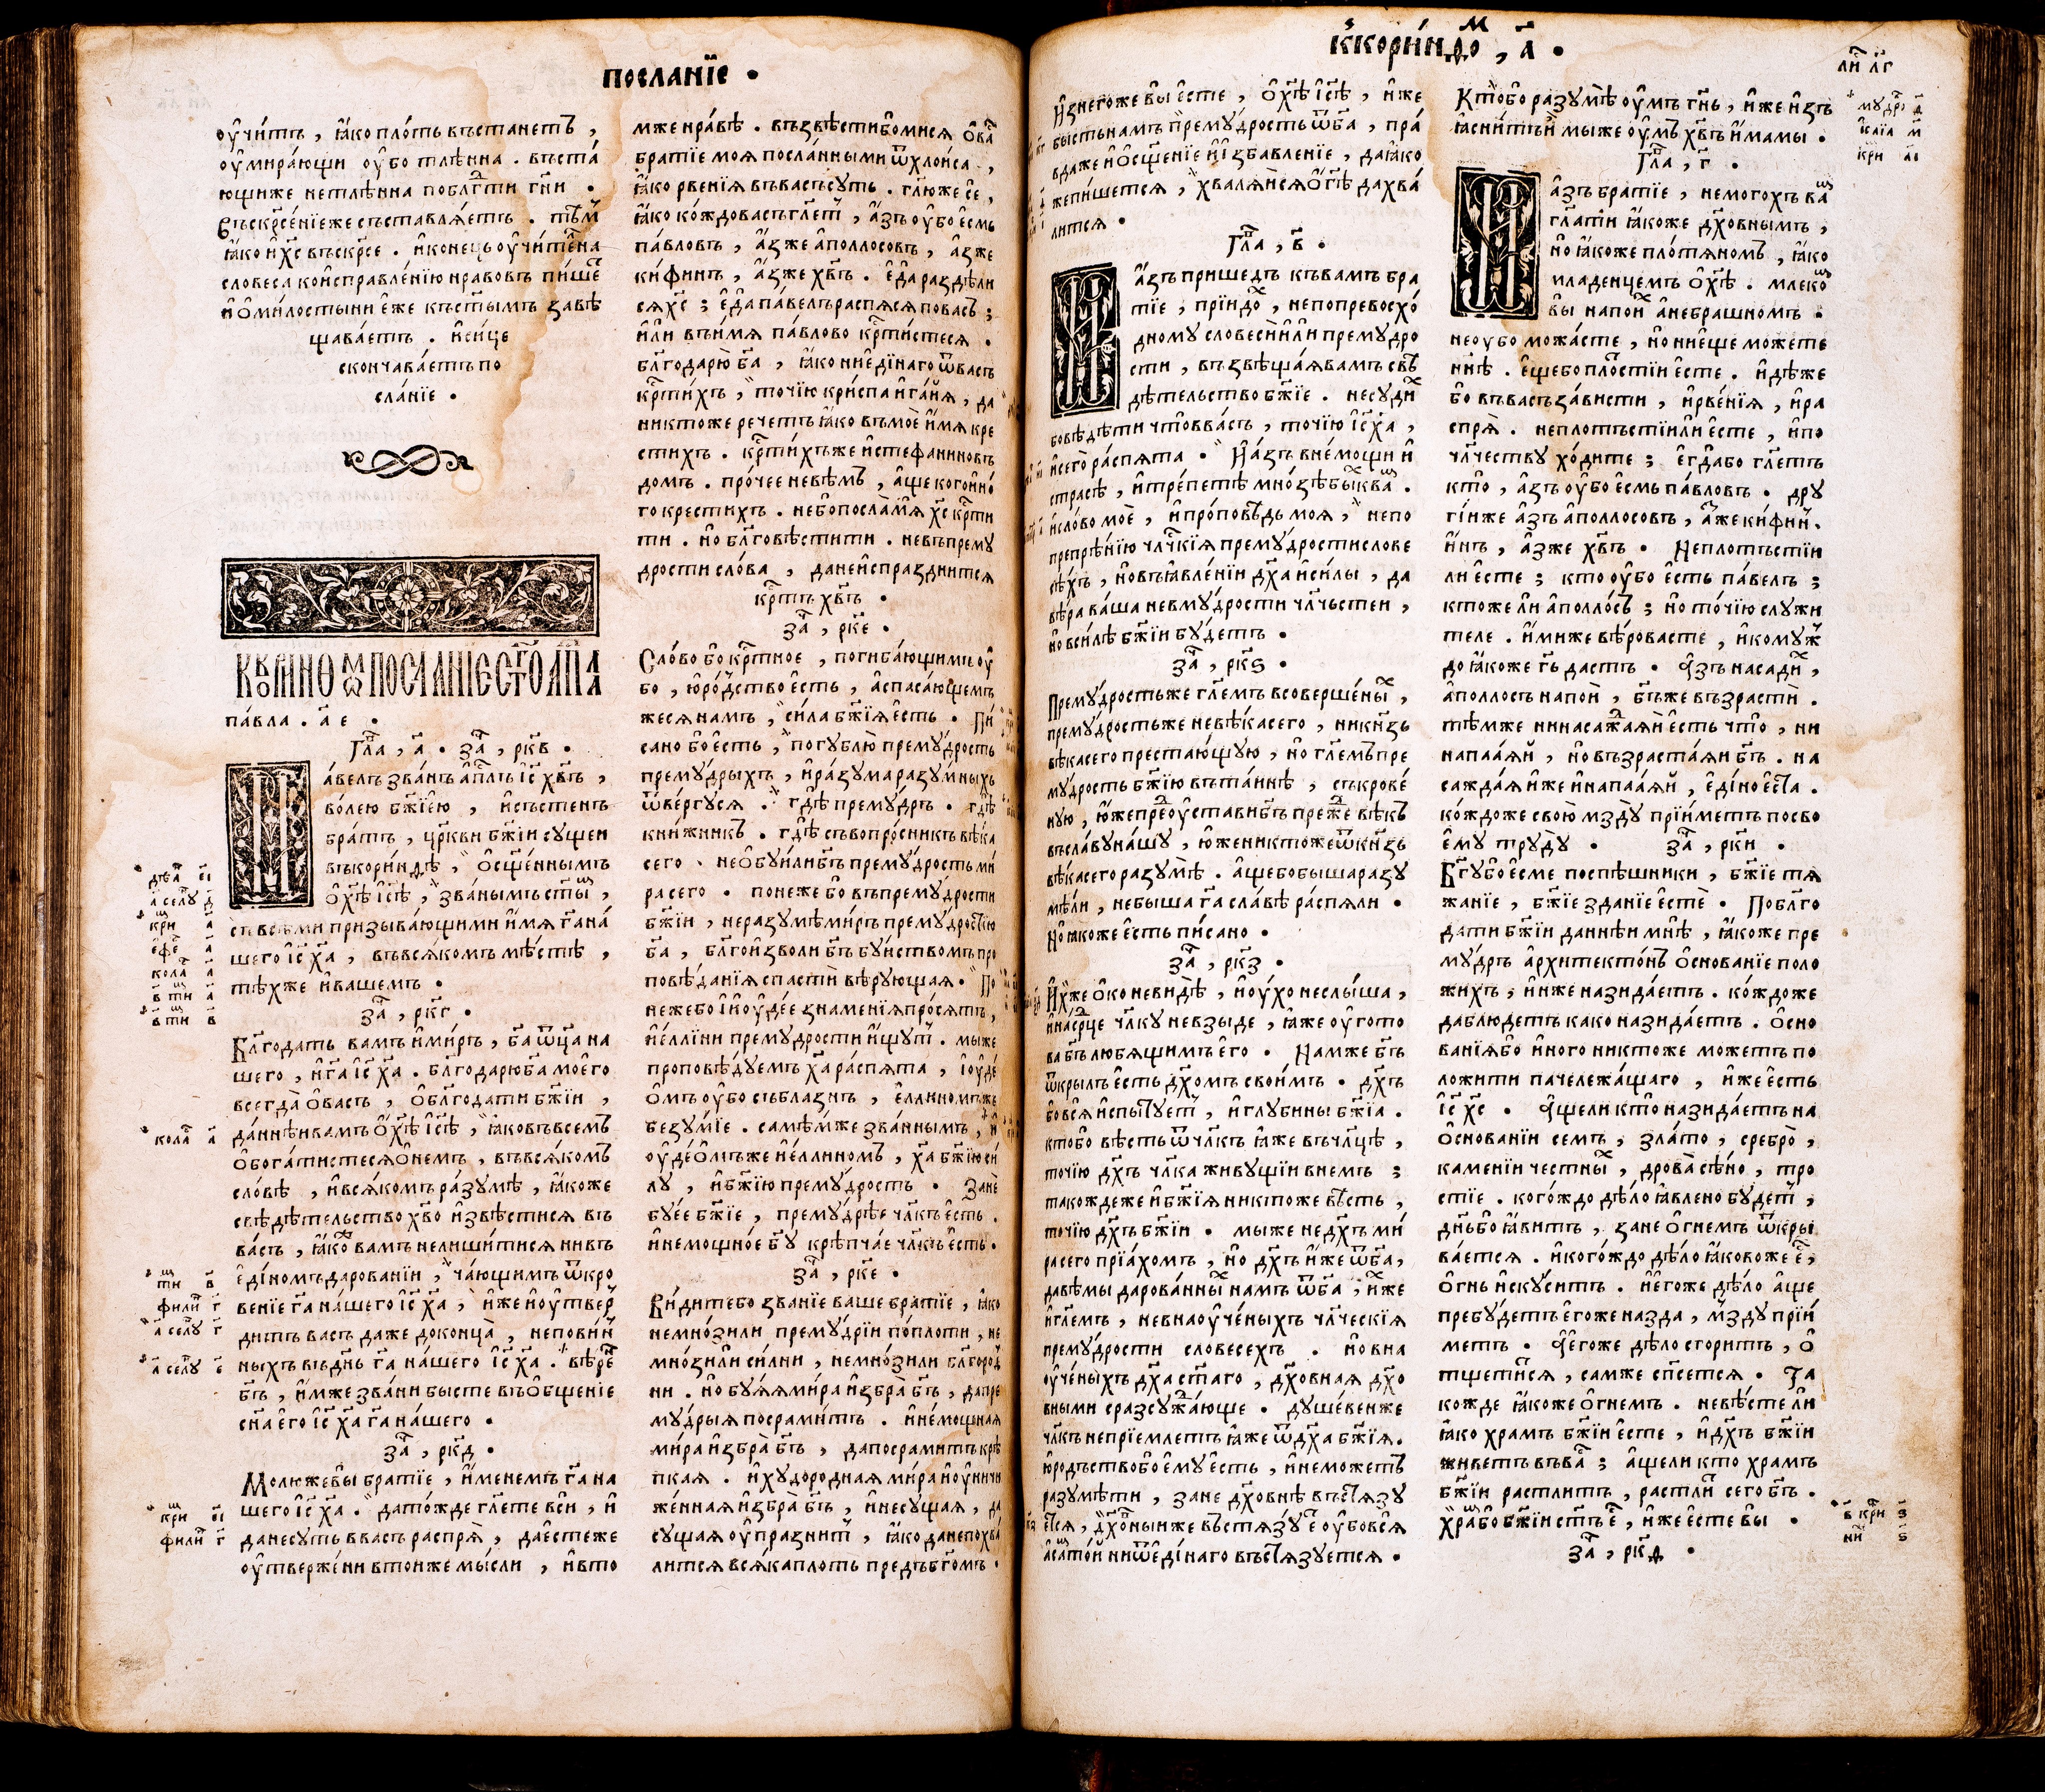 посланїе .
оучи́тъ, ꙗ҆́ко пло́ть въстанетъ,
оумира́ющи оубо тлѣ́нна . въста́
ющиже нетлѣ́нна поблг҃ти гн҃и .
Въскр҃се́нїеже съставлѧ́етъ . тѣ́м
ꙗ҆́ко и҆ хс҃ въскр҃се . и҆ конецъ оучи́те́нна
словеса ко и҆справле́нїю нравовъ пи́ше
и҆ ѡ҆ ми́лостыни е҆́же къст҃ымъ завѣ
щава́етъ . и҆ си́це
сконча́ва́етъ по
сла́нїе .
Къ коринѳомъ посланїе ст҃го ап҃ла
па́вла . а҃ е .
Гла, а҃ . За, рк҃в .
Па́велъ зва́нъ ап҃лъ і҆с҃ хв҃ъ,
во́лею бж҃їею, и҆ състенъ
бра́тъ, цр҃кви бж҃їи сущеи
въкори́нѳѣ, ѡ҆сщ҃е́ннымъ
ѡ҆ хс҃ѣ і҆с҃ѣ, зва́нымъ ст҃ы,
съвсѣ́ми призыва́ющими и҆́мѧ га҃ на́
шего і҆с҃ ха҃, въвсѧ́комъ мѣ́стѣ,
тѣ́хже и҆ вашемъ .
За, рк҃г .
Блг҃одать вамъ и҆ ми́ръ, ба҃ ѿц҃а на
шего, и҆ га҃ і҆с҃ ха҃ . блг҃одарю ба҃ моего̀
всегда̀ ѡ҆ васъ, ѡ҆ блг҃одати бж҃їи,
да́ннѣи вамъ ѡ҆ хс҃ѣ і҆с҃ѣ, ꙗ҆́ко въ всемъ
ѡ҆бога́тистесѧ ѡ҆ немъ, въвсѧ́комъ
сло́вѣ, и҆ всѧ́комъ ра́зумѣ, ꙗ҆́коже
свѣдѣ́тельство хв҃о и҆звѣ́стисѧ въ
ва́съ, ꙗ҆́ко вамъ нелиши́тисѧ нивъ
е҆ди́номъ дарованїи, ча́ющимъ ѿкро
венїе га҃ на́шего і҆с҃ ха҃, и҆́же и҆ оутвер
ди́тъ васъ даже доконца̀, непови́н
ныхъ въ дн҃ь га҃ на́шего і҆с҃ ха҃ . вѣ́ре
бг҃ъ, и҆́мже зва́ни бысте въ ѡ҆бщенїе
сн҃а е҆го̀ і҆с҃ ха҃ га҃ на́шего .
За, рк҃д .
Молю́же вы братїе, и҆́менемъ га҃ на
шего і҆с҃ ха҃ . дато́жде гл҃ете вси, и҆
данесуть ввасъ распрѧ̀, дае́стеже
оутверже́ни втои́же мы́сли, и҆ вто
мже нра́вѣ . възвѣсти бо мисѧ ѡ҆ ва
братїе моѧ посла́нными ѿ хлоиса,
ꙗ҆́ко рвенїѧ въвасъ суть . гл҃юже се,
ꙗ҆́ко ко́ждо васъ гл҃ет, а҆́зъ оубо е҆́смь
па́вловъ, а҆́зже а҆поллосовъ, а҆зже
ки́финъ, а҆́зже хв҃ъ . е҆да раздѣли
сѧ хс҃; е҆да па́велъ распѧсѧ повасъ;
и҆ли въи҆́мѧ па́влово кр҃ти́стесѧ .
блг҃одарю̀ ба҃, ꙗ҆́ко ни е҆ди́наго ѿ васъ
кр҃ти́хъ, то́чїю кри́спа и҆ га́їѧ, да
никтоже речетъ ꙗ҆́ко въмоѐ и҆́мѧ кре
стихъ . кр҃ти́хъже и҆ стефани́новъ
домъ . про́чее невѣ́мъ, а҆ще кого и҆но́
го крестихъ . небо посла̀ мѧ хс҃ кр҃ти
ти . но блг҃овѣ́стити . невъпрему
дрости сло́ва, данеи҆спразднитсѧ
кр҃тъ хв҃ъ .
За, рк҃е .
Сло́во бо кр҃тное, погиба́ющимъ оу
бо, ю҆ро́дство е҆́сть, а҆ спаса́ющем
жесѧ намъ, си́ла бж҃їѧ е҆́сть . Пи́
сано бо е҆́сть, погублю̀ прему́дрость
прему́дрыхъ, и҆ ра́зума разумныхъ
ѿве́ргусѧ . гдѣ прему́дръ . гдѣ
кни́жникъ . гдѣ съвопро́сникъ вѣ́ка
сего . не ѡ҆буи́ли бг҃ъ прему́дрость ми́
ра сего . понеже бо въпрему́дрости
бж҃їи, неразумѣ ми́ръ прему́дростїю
ба҃, блг҃ои҆зволи бг҃ъ буи́ствомъ про
повѣ́данїѧ спастѝ вѣ́рующаѧ . По
неже бо і҆ и҆оуде́е знаменїѧ про́сѧтъ,
и҆ е҆́ллини премудрости и҆́щут . мыже
проповѣ́дуемъ ха҃ ра́спѧта, і҆оуде́
ѡ҆мъ оубо съблазнъ, е҆ллиномъже
безу́мїе . самѣ́мже зва́ннымъ, и҆
оуде́ѡ҆мъже и҆ е҆́ллинномъ, ха҃ бж҃їю си́
лу, и҆ бж҃їю прему́дрость . Зане
буее бж҃їе, прему́дрѣе чл҃къ е҆́сть .
и҆ немощно́е бг҃у крѣпча́е чл҃къ е҆́сть .
За, рк҃е .
Ви́дите бо званїе ваше братїе, ꙗ҆́ко
немно́зи ли прему́дрїи по́плоти, не
мно́зи ли си́лни, немно́зи ли блг҃ород
ни . но буѧѧ ми́ра и҆збра̀ бг҃ъ, да пре
му́дрыѧ посрами́тъ . и҆ не́мощнаѧ
ми́ра и҆збра̀ бг҃ъ, да посрамитъ крѣ́
пкаѧ . и҆ худороднаѧ ми́ра и҆ оуничи
же́ннаѧ и҆збра̀ бг҃ъ, и҆ несу́щаѧ, да
су́щаѧ оупразнит, ꙗ҆́ко да непохва́
литсѧ всѧ́ка плоть предъ бг҃омъ .
дѣа еі
а҃ селу д
кри а
е҆фе а
кола а
в҃ ти а
в҃ ти в
кола а
ти в
фили г
а҃ селу г
а҃ селу е
кри еі
фили г
Къкори́нѳом, а҃ .
ли лг
и҆знегоже вы е҆сте, ѡ҆ хс҃ѣ і҆с҃ѣ, и҆́же
бысть намъ прему́дрость ѿ ба҃, пра́
вдаже и҆ ѡ҆сщ҃енїе и҆ і҆збавленїе, да ꙗ҆́ко
жепи́шетсѧ, хвалѧ́исѧ ѡ҆ гд҃ѣ да хва́
литсѧ .
Гла, в҃ .
И҆ а҆́зъ пришедъ къвамъ бра
тїе, прїидо́х, непопревосхо́
дному словеси и҆ли премудро
сти, възвѣща́ѧ вамъ свѣ
дѣтельство бж҃їе . несуди́х
бо вѣдѣти что въва́съ, точїю і҆с҃ ха҃,
и҆ сего̀ ра́спѧта . И҆ а҆́зъ вне́мощи и҆
страсѣ, и҆ тре́петѣ мно́зѣ бых ква .
и҆ сло́во моѐ, и҆ про́повѣдь моѧ, непо
препрѣ́нїю чл҃ч҃скїѧ прему́дрости слове
сѣ́хъ, но въꙗ҆вле́нїи дх҃а и҆ си́лы, да
вѣ́ра ва́ша невму́дрости чл҃чьстеи,
но всилѣ бж҃їи бу́детъ .
За, рк҃ѕ .
Прему́дростьже гл҃емъ всоверше́ных,
прему́дростьже невѣ́ка сего, никнѧзь
вѣ́ка сего преста́ющую, но гл҃емъ пре
му́дрость бж҃їю вта́йнѣ, съкрове́
ную, ю҆́жепреоуставибг҃ъ преже вѣкъ
въсла́ву на́шу, ю҆́же никтоже ѿ кнѧзь
вѣ́ка сего разумѣ̀ . а҆щебо быша разу
мѣ́ли, небыша га҃ сла́вѣ ра́спѧли .
Но ꙗ҆́коже е҆́сть пи́сано .
За, рк҃з .
И҆́хже ѡ҆ко невидѣ, и҆ оу́хо неслы́ша,
и҆ на се́рце чл҃ку невзыде, ꙗ҆́же оугото
ва бг҃ъ любѧщимъ е҆го . Намже бг҃ъ
ѿкрылъ е҆сть дх҃омъ свои́мъ . дх҃ъ
бо всѧ̀ и҆спытует, и҆ глубины бж҃їа .
кто бо вѣсть ѿ чл҃къ ꙗ҆́же въчл҃цѣ,
точїю дх҃ъ чл҃ка живущїи внемъ;
такождеже и҆ бж҃їѧ никтоже вѣсть,
точїю дх҃ъ бж҃їи . мыже недх҃ъ ми́
ра сего прїа́хомъ, но дх҃ъ и҆́же ѿ ба҃,
давѣ́мы дарова́нных намъ ѿ ба҃, и҆хже
и҆ гл҃емъ, невнаоуче́ныхъ чл҃ческїѧ
прему́дрости словесехъ . но вна
оуче́ныхъ дх҃а ст҃аго, дх҃овнаѧ дх҃о
вными сразсужа́юще . душе́венже
чл҃къ непрїемлетъ ꙗ҆́же ѿ дх҃а бж҃їѧ .
ю҆родъство бо е҆му е҆сть, и҆ неможетъ
разумѣти, зане дх҃овнѣ въстѧзу
етсѧ, дх҃о́вныиже въстѧзуе оубо всѧ̀
а҆ сам то́й ни ѿ е҆ди́наго въстѧзуетсѧ .
Кто бо разумѣ̀ оумъ гн҃ь, и҆же и҆зъ
ꙗ҆сни́тъ и҆̀ мыже оумъ хв҃ъ и҆́мамы .
Гла, г҃ .
И҆ а҆зъ бра́тїе, немогохъ ва
гл҃ати ꙗ҆́коже дх҃овнымъ,
но ꙗ҆́коже пло́тѧномъ, ꙗ҆́ко
младенцемъ ѡ҆ хс҃ѣ . млеко
вы напоих а҆ небрашномъ .
неоубо можа́сте, но ниеще мо́жете
нн҃ѣ . е҆ще бо пло́стїи е҆сте . и҆дѣже
бо въвасъ за́висти, и҆ рве́нїѧ, и҆ ра
спрѧ̀ . неплотъстїи ли е҆сте, и҆ по
чл҃честву хо́дите; е҆гда́бо гл҃етъ
кто̀, а҆зъ оубо е҆́смь па́вловъ . дру
гі́иже а҆зъ а҆поллосовъ, а҆́зже ки́фи
инъ, а҆зже хв҃ъ . Неплотъстїи
ли е҆сте; кто оубо е҆́сть па́велъ;
ктоже ли а҆полло́съ; но то́чїю служи
теле . и҆́миже вѣ́ровасте, и҆ кому́ж
до ꙗ҆́коже гь҃ дастъ . А҆зъ насади́х,
а҆поллосъ напоѝ, бг҃ъже възрастѝ .
тѣмже ни насажаѧи е҆сть что̀, ни
напаа́ѧй, но възраста́ѧи бг҃ъ . на
сажда́ѧиже и҆ напаа́ѧй, е҆ди́но еста .
ко́ждоже свою̀ мзду̀ прїи́метъ посво
е҆му тру́ду . За, рк҃и .
Бг҃у бо е҆сме поспѣ́шники, бж҃їе тѧ
жанїе, бж҃їе зданїе е҆стѐ . Поблг҃о
дати бж҃їи даннѣи мнѣ̀, ꙗ҆́коже пре
му́дръ а҆рхитекто́нъ ѡ҆снованїе поло
жихъ; и҆нже назида́етъ . ко́ждоже
даблюдетъ како назида́етъ . ѡ҆сно
ванїѧ бо и҆ного никтоже можетъ по
ложити пачележа́щаго, и҆же е҆сть
і҆с҃ хс҃ . А҆щели кто назида́етъ на
ѡ҆снованїи семъ, зла́то, сребро̀,
каменїи честны́х, дрова̀ сѣ́но, тро
стїе . кого́ждо дѣ́ло ꙗ҆влено буде́т,
дн҃ьбо ꙗ҆́витъ, зане ѡ҆гнемъ ѿкры
ва́етсѧ . и҆ кого́ждо дѣ́ло ꙗ҆ково же е,
ѡ҆гнь и҆скуситъ . и҆ е҆гоже дѣло а҆ще
пребу́детъ е҆гоже назда, мзду прїи́
метъ . А҆ е҆гоже дѣло сгоритъ, ѡ҆
тщети́сѧ, самже сп҃сетсѧ . Та
кожде ꙗ҆́коже ѡ҆гнемъ . невѣ́сте ли
ꙗ҆́ко храмъ бж҃їи е҆сте, и҆ дх҃ъ бж҃їи
живетъ въва; а҆щели кто храмъ
бж҃їи растлитъ, растли́ сего бг҃ъ .
хра бо бж҃їи ст҃ъ е, и҆́же е҆сте вы .
За, рк҃ѳ .
мудро д
і҆саїа м
кри аі
в҃ кри ѕ
ни ѕ